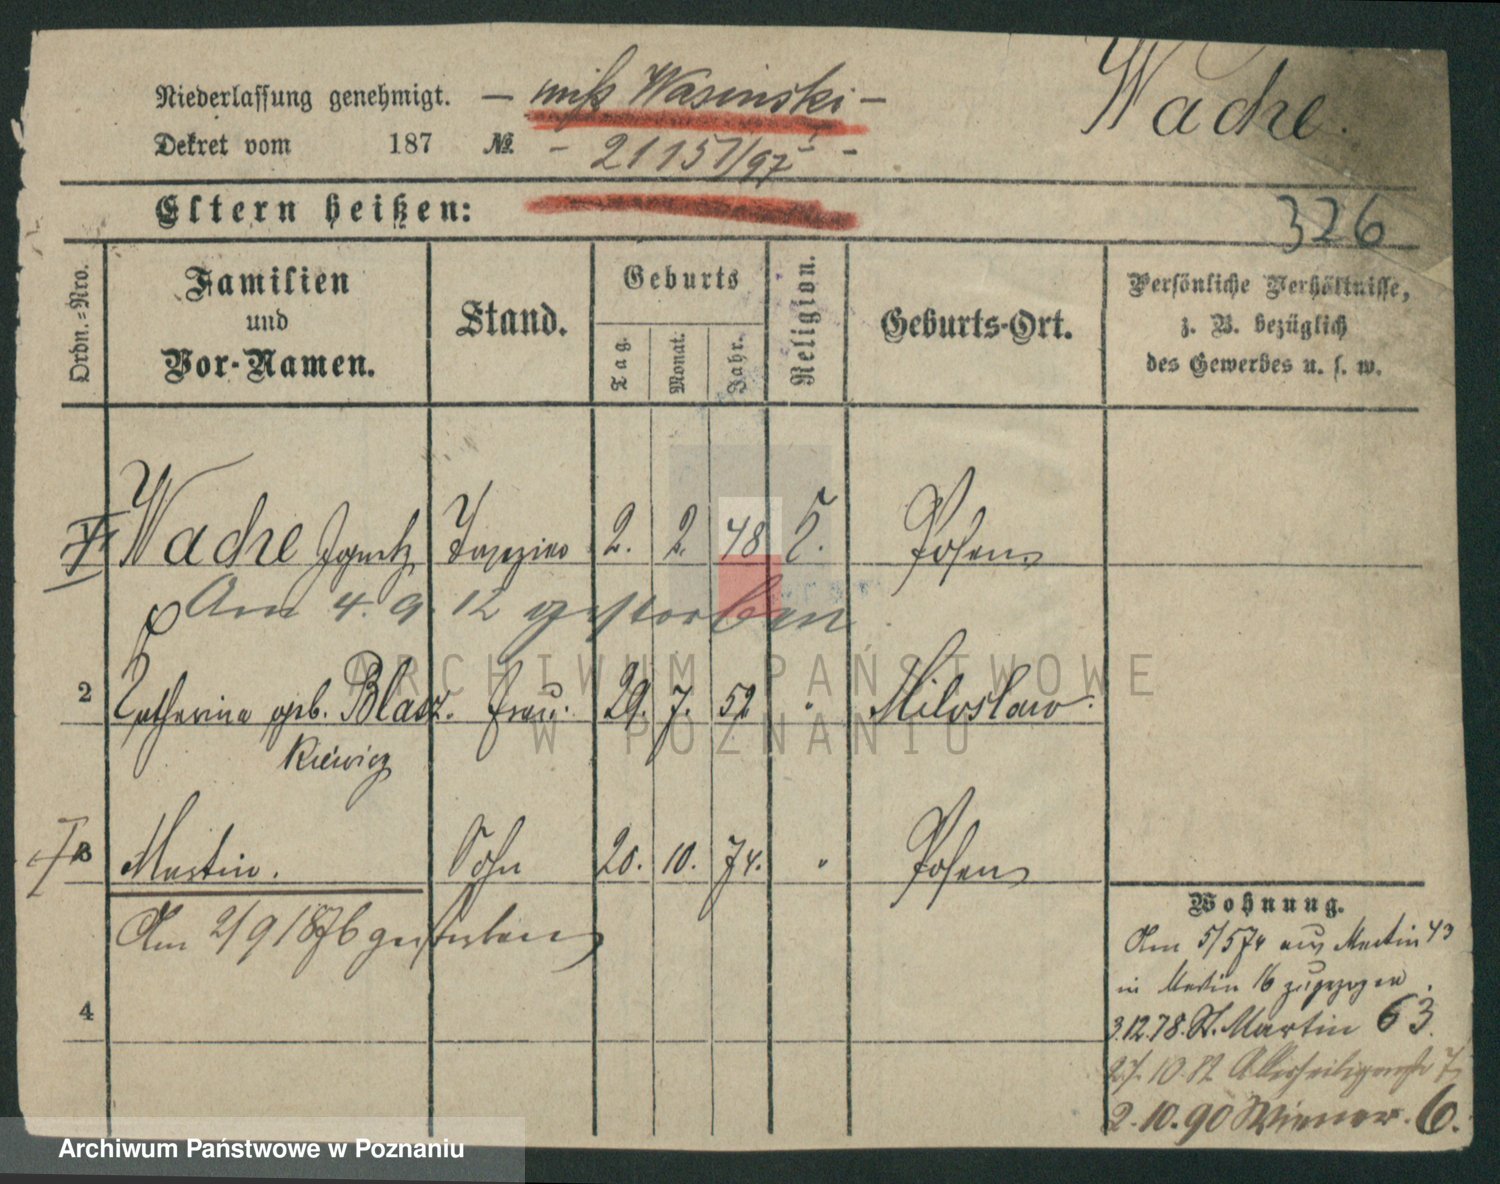 Niederlassung genehmigt. — miß Wasinski —
Wache.
Dekret vom 187 No. - 21151/97 - -
Eltern heißen:
326
Ordn.-Nro.
Familien und Vor-Namen.
Stand.
Geburts
Tag.
Monat.
Jahr.
Religion.
Geburts-Ort.
Persönliche Verhältnisse, z. B. bezüglich des Gewerbes u. s. w.
Wache Ignatz 2. 2. 48 Posen
Am 4. 9. 12 gestorben
2 Catharina geb. Blasz- Frau. 29. 7. 52 " Miloslaw.
kiewicz
3 Martin. Sohn 20. 10. 74. " Posen
Am 2/9 1876 gestorben
4
Wohnung.
Am 5/5 74 aus Martin 43
in Martin 16 zugezogen.
3.12.78. St. Martin 63.
27.10.82 Allerheiligenstr 7.
2.10.90 Wiener. 6.
ARCHIWUM PAŃSTWOWE
W POZNANIU
Archiwum Państwowe w Poznaniu